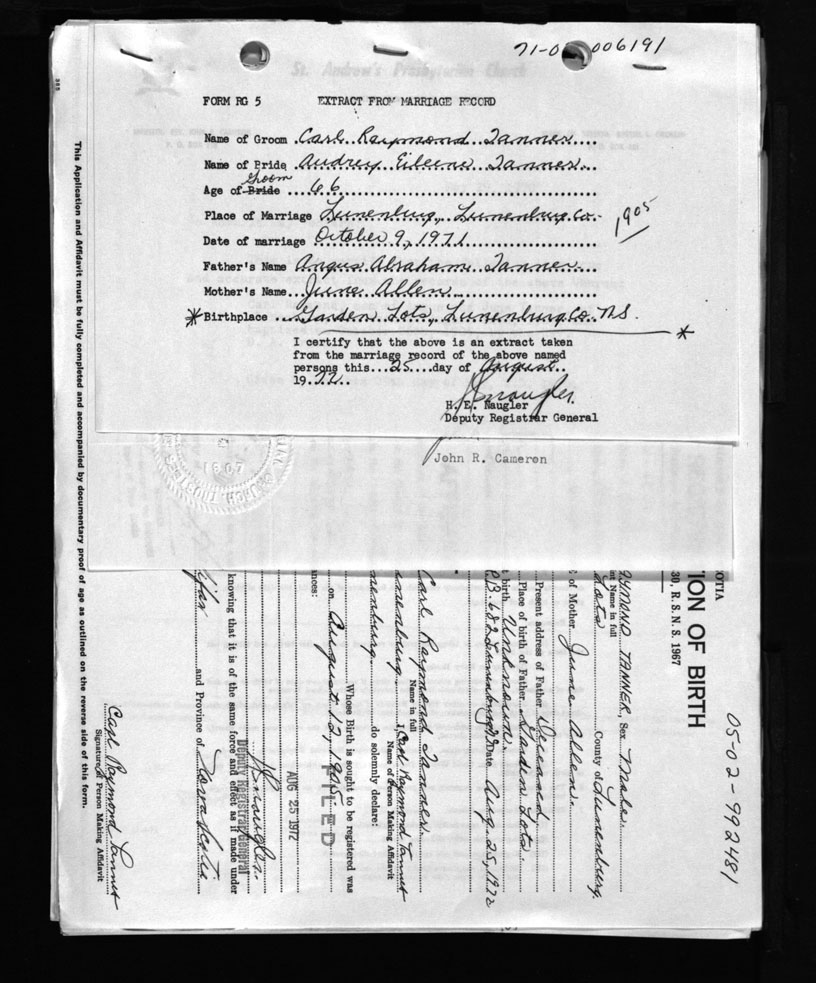 71-0 006191
St. Andrew's Presbyterian Church
FORM RG 5 EXTRACT FROM MARRIAGE RECORD
Name of Groom Carl Raymond Tanner
Name of Bride Audrey Eileene Tanner
Groom
Age of Bride 66
Place of Marriage Lunenburg, Lunenburg Co.
1905
Date of marriage October 9, 1971
Father's Name Angus Abraham Tanner
Mother's Name June Allen
* Birthplace Garden Lots, Lunenburg Co. N.S. *
I certify that the above is an extract taken
from the marriage record of the above named
persons this 25 day of August
1972
H. E. Naugler
Deputy Registrar General
John R. Cameron
1867
This Application and Affidavit must be fully completed and accompanied by documentary proof of age as outlined on the reverse side of this form.
05-02-992481
OTIA
ION OF BIRTH
30, R. S. N. S. 1967
AYMOND TANNER, Sex Male
nt Name in full
Lots County of Lunenburg
of Mother June Allen.
Present address of Father Deceased
Place of birth of Father Garden Lots
birth Unknown.
Lunenburg Date Aug. 25, 1972
Carl Raymond Tanner
Name in full
I, Carl Raymond Tanner
Name of Person Making Affidavit
nenburg do solemnly declare:
Whose Birth is sought to be registered was
on August 12, 1905
ances:
FILED
AUG 25 1972
Deputy Registrar General
knowing that it is of the same force and effect as if made under
lifax and Province of Nova Scotia
Carl Raymond Tanner
Signature of Person Making Affidavit